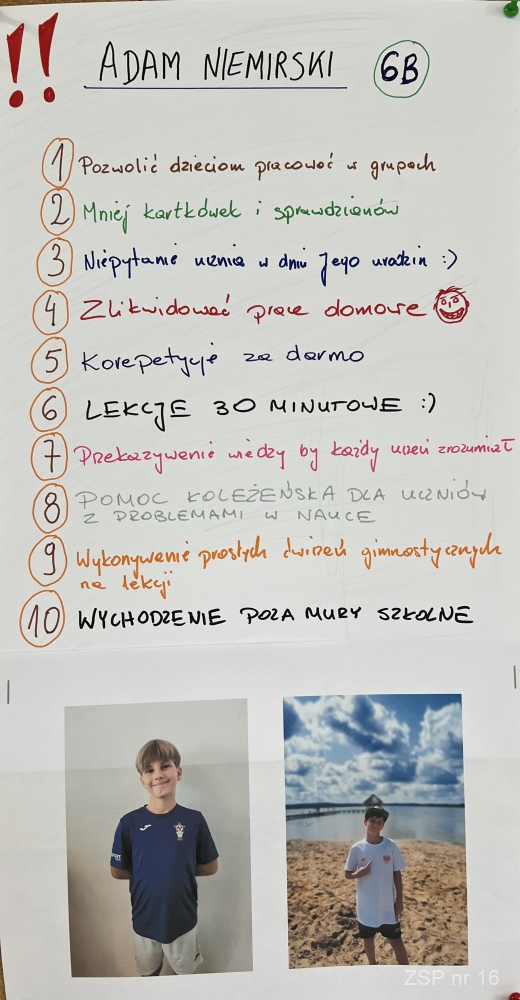 !!
ADAM NIEMIRSKI 6B
1 Pozwolić dzieciom pracować w grupach
2 Mniej kartkówek i sprawdzianów
3 Niepytanie ucznia w dniu Jego urodzin :)
4 Zlikwidować prace domowe
5 Korepetycje za darmo
6 LEKCJE 30 MINUTOWE :)
7 Przekazywanie wiedzy by każdy uczeń zrozumiał
8 POMOC KOLEŻEŃSKA DLA UCZNIÓW
Z PROBLEMAMI W NAUCE
9 Wykonywanie prostych ćwiczeń gimnastycznych
na lekcji
10 WYCHODZENIE POZA MURY SZKOLNE
ZSP nr 16